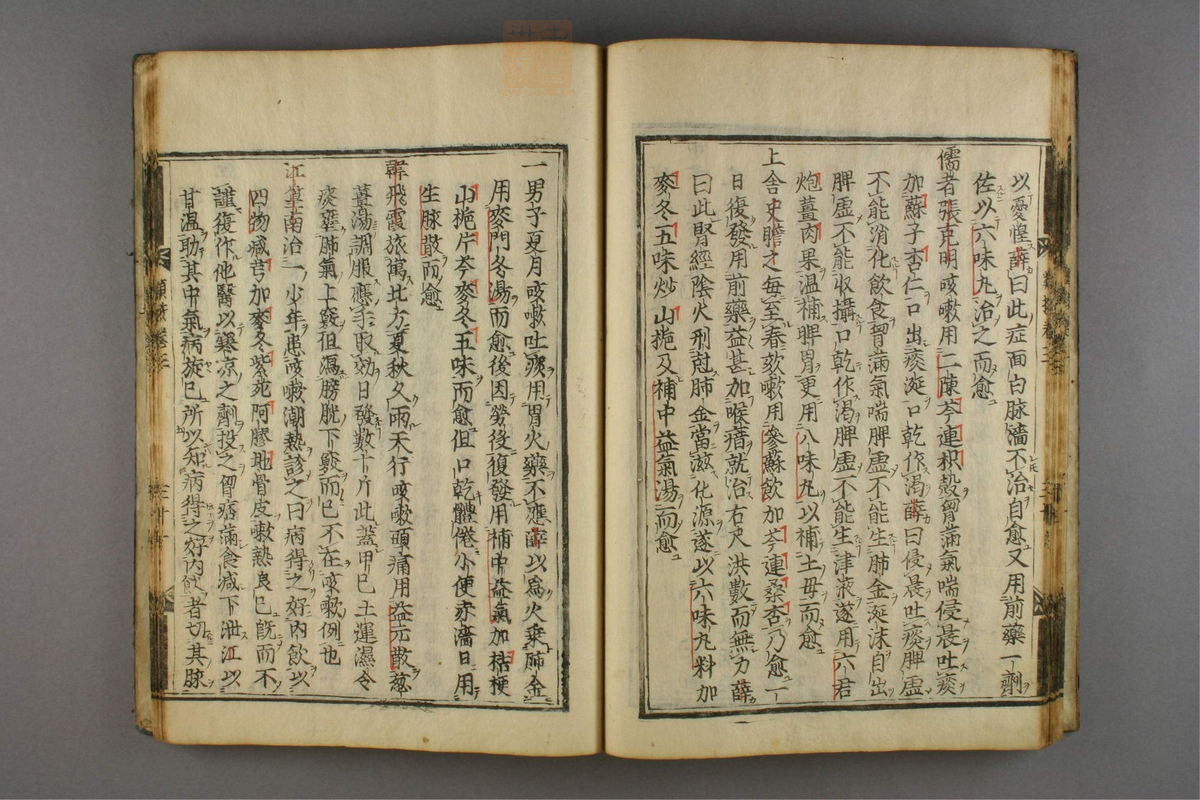 以憂惶薛曰此症面白脉濇不治自愈又用前藥一劑
佐以六味丸治之而愈
儒者張克明咳嗽用二陳芩連枳殼胷滿氣喘侵晨吐痰
加蘇子杏仁口出痰涎口乾作渴薛曰侵晨吐痰脾虛
不能消化飲食胷滿氣喘脾虛不能生肺金涎沫自出
脾虛不能收攝口乾作渴脾虛不能生津液遂用六君
炮薑肉果溫補脾胃更用八味丸以補土母而愈
上舍史瞻之每至春欬嗽用參蘇飲加芩連桑杏乃愈一
日復發用前藥益甚加喉瘖就治右尺洪數而無力薛
曰此腎經陰火刑尅肺金當滋化源遂以六味丸料加
麥冬五味炒山梔及補中益氣湯而愈
一男子夏月咳嗽吐痰用胃火藥不應薛以爲火乘肺金
用麥門冬湯而愈後因勞後復發用補中益氣加桔梗
山梔片芩麥冬五味而愈但口乾體倦小便赤濇日用
生脉散而愈
韓飛霞旅寓北方夏秋久雨天行咳嗽頭痛用益元散葱
薑湯調服應手取効日發數十斤此蓋甲己土運濕令
痰壅肺氣上竅但瀉膀胱下竅而已不在咳嗽例也
江篁南治一少年患咳嗽潮熱診之曰病得之好內飲以
四物减芎加麥冬紫菀阿膠地骨皮嗽熱良已旣而不
謹復作他醫以寒凉之劑投之胷痞滿食减下泄江以
甘溫助其中氣病旋已所以知病得之好內飮者切其脉